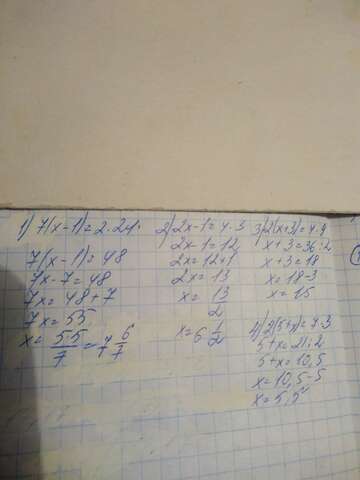 1) 7(x-1)=2·24
7(x-1)=48
7x-7=48
7x=48+7
7x=55
x=55/7=7 6/7
2) 2x-1=4·3
2x-1=12
2x=12+1
2x=13
x=13/2
x=6 1/2
3) 2(x+3)=4·9
x+3=36:2
x+3=18
x=18-3
x=15
4) 2(5+x)=7·3
5+x=21:2
5+x=10,5
x=10,5-5
x=5,5